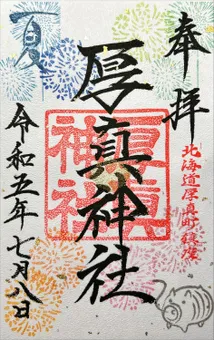 奉拝
北海道厚真町鎮座
厚眞神社
厚眞神社
夏
令和五年七月八日